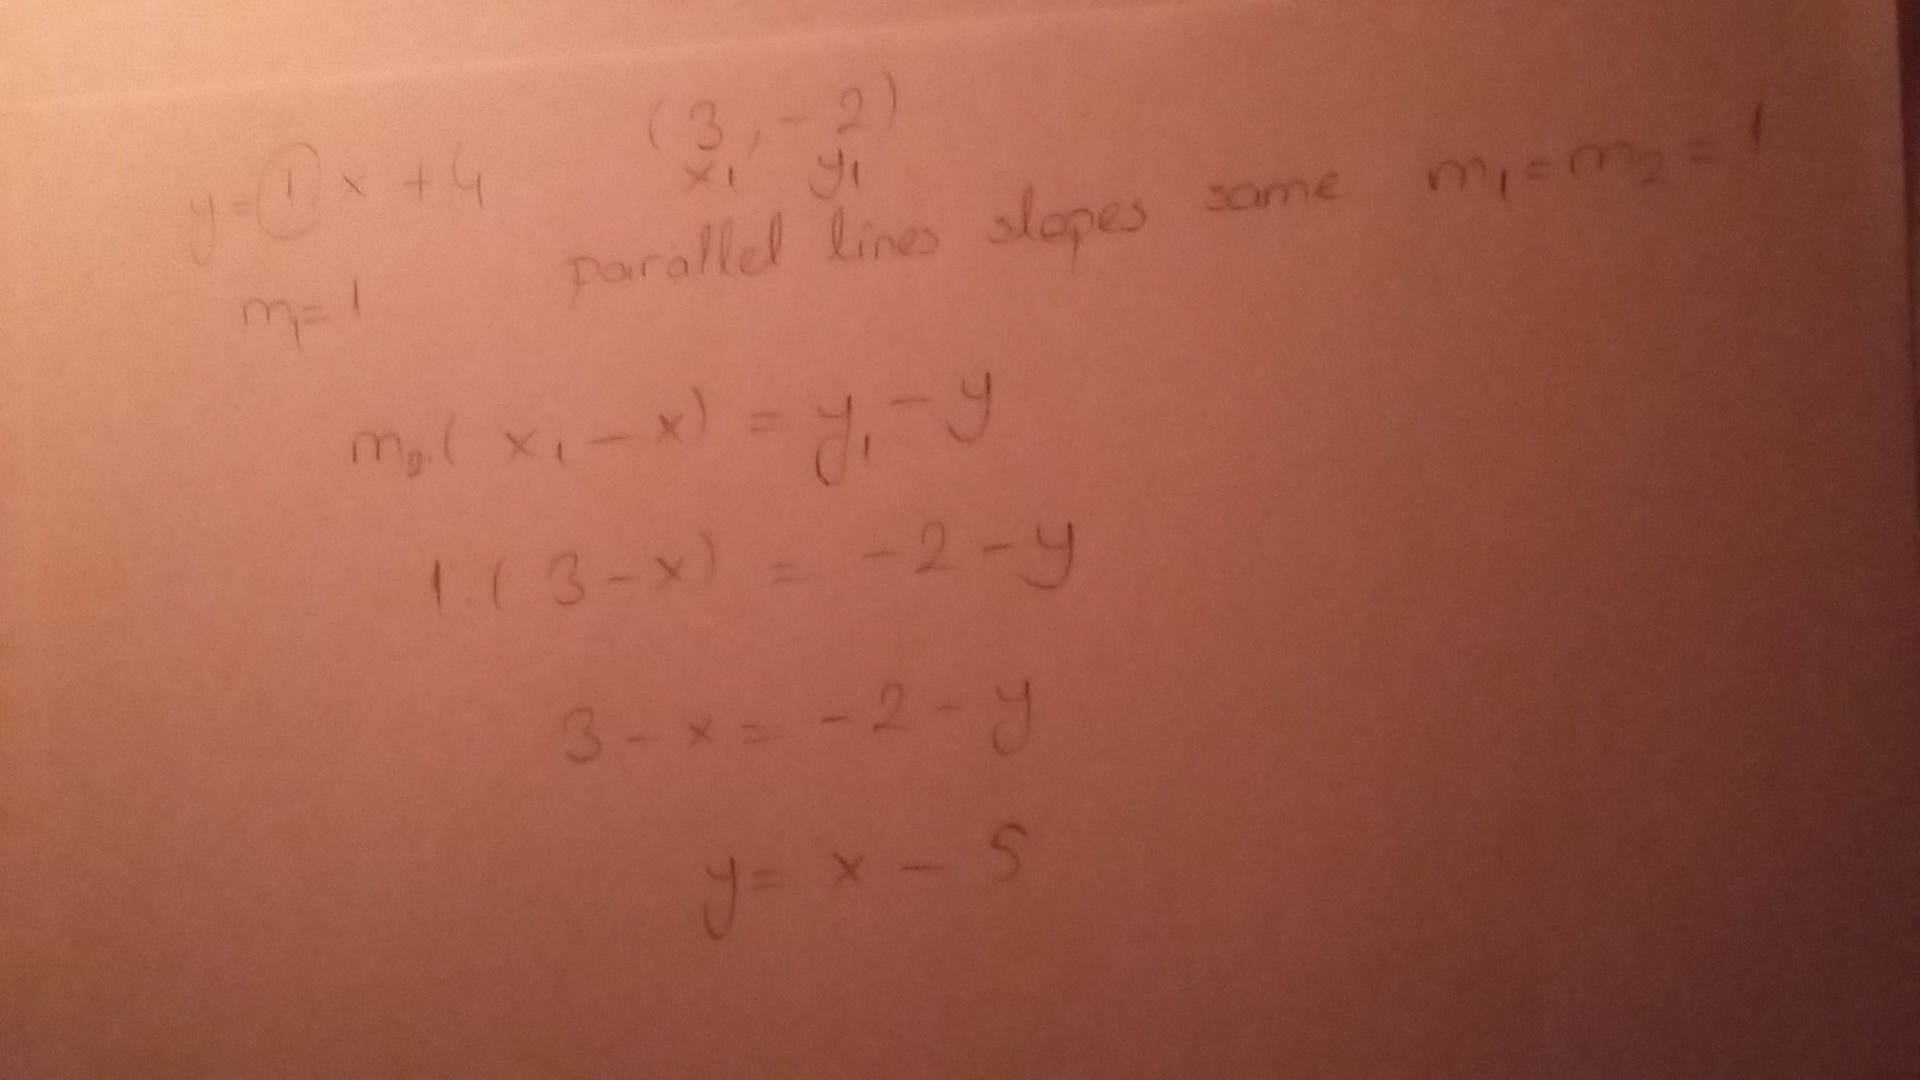 (3, -2)
x₁ y₁
y=1x+4
parallel lines slopes same m₁=m₂=1
m₁=1
m₂.(x₁-x)=y₁-y
1.(3-x)=-2-y
3-x=-2-y
y=x-5